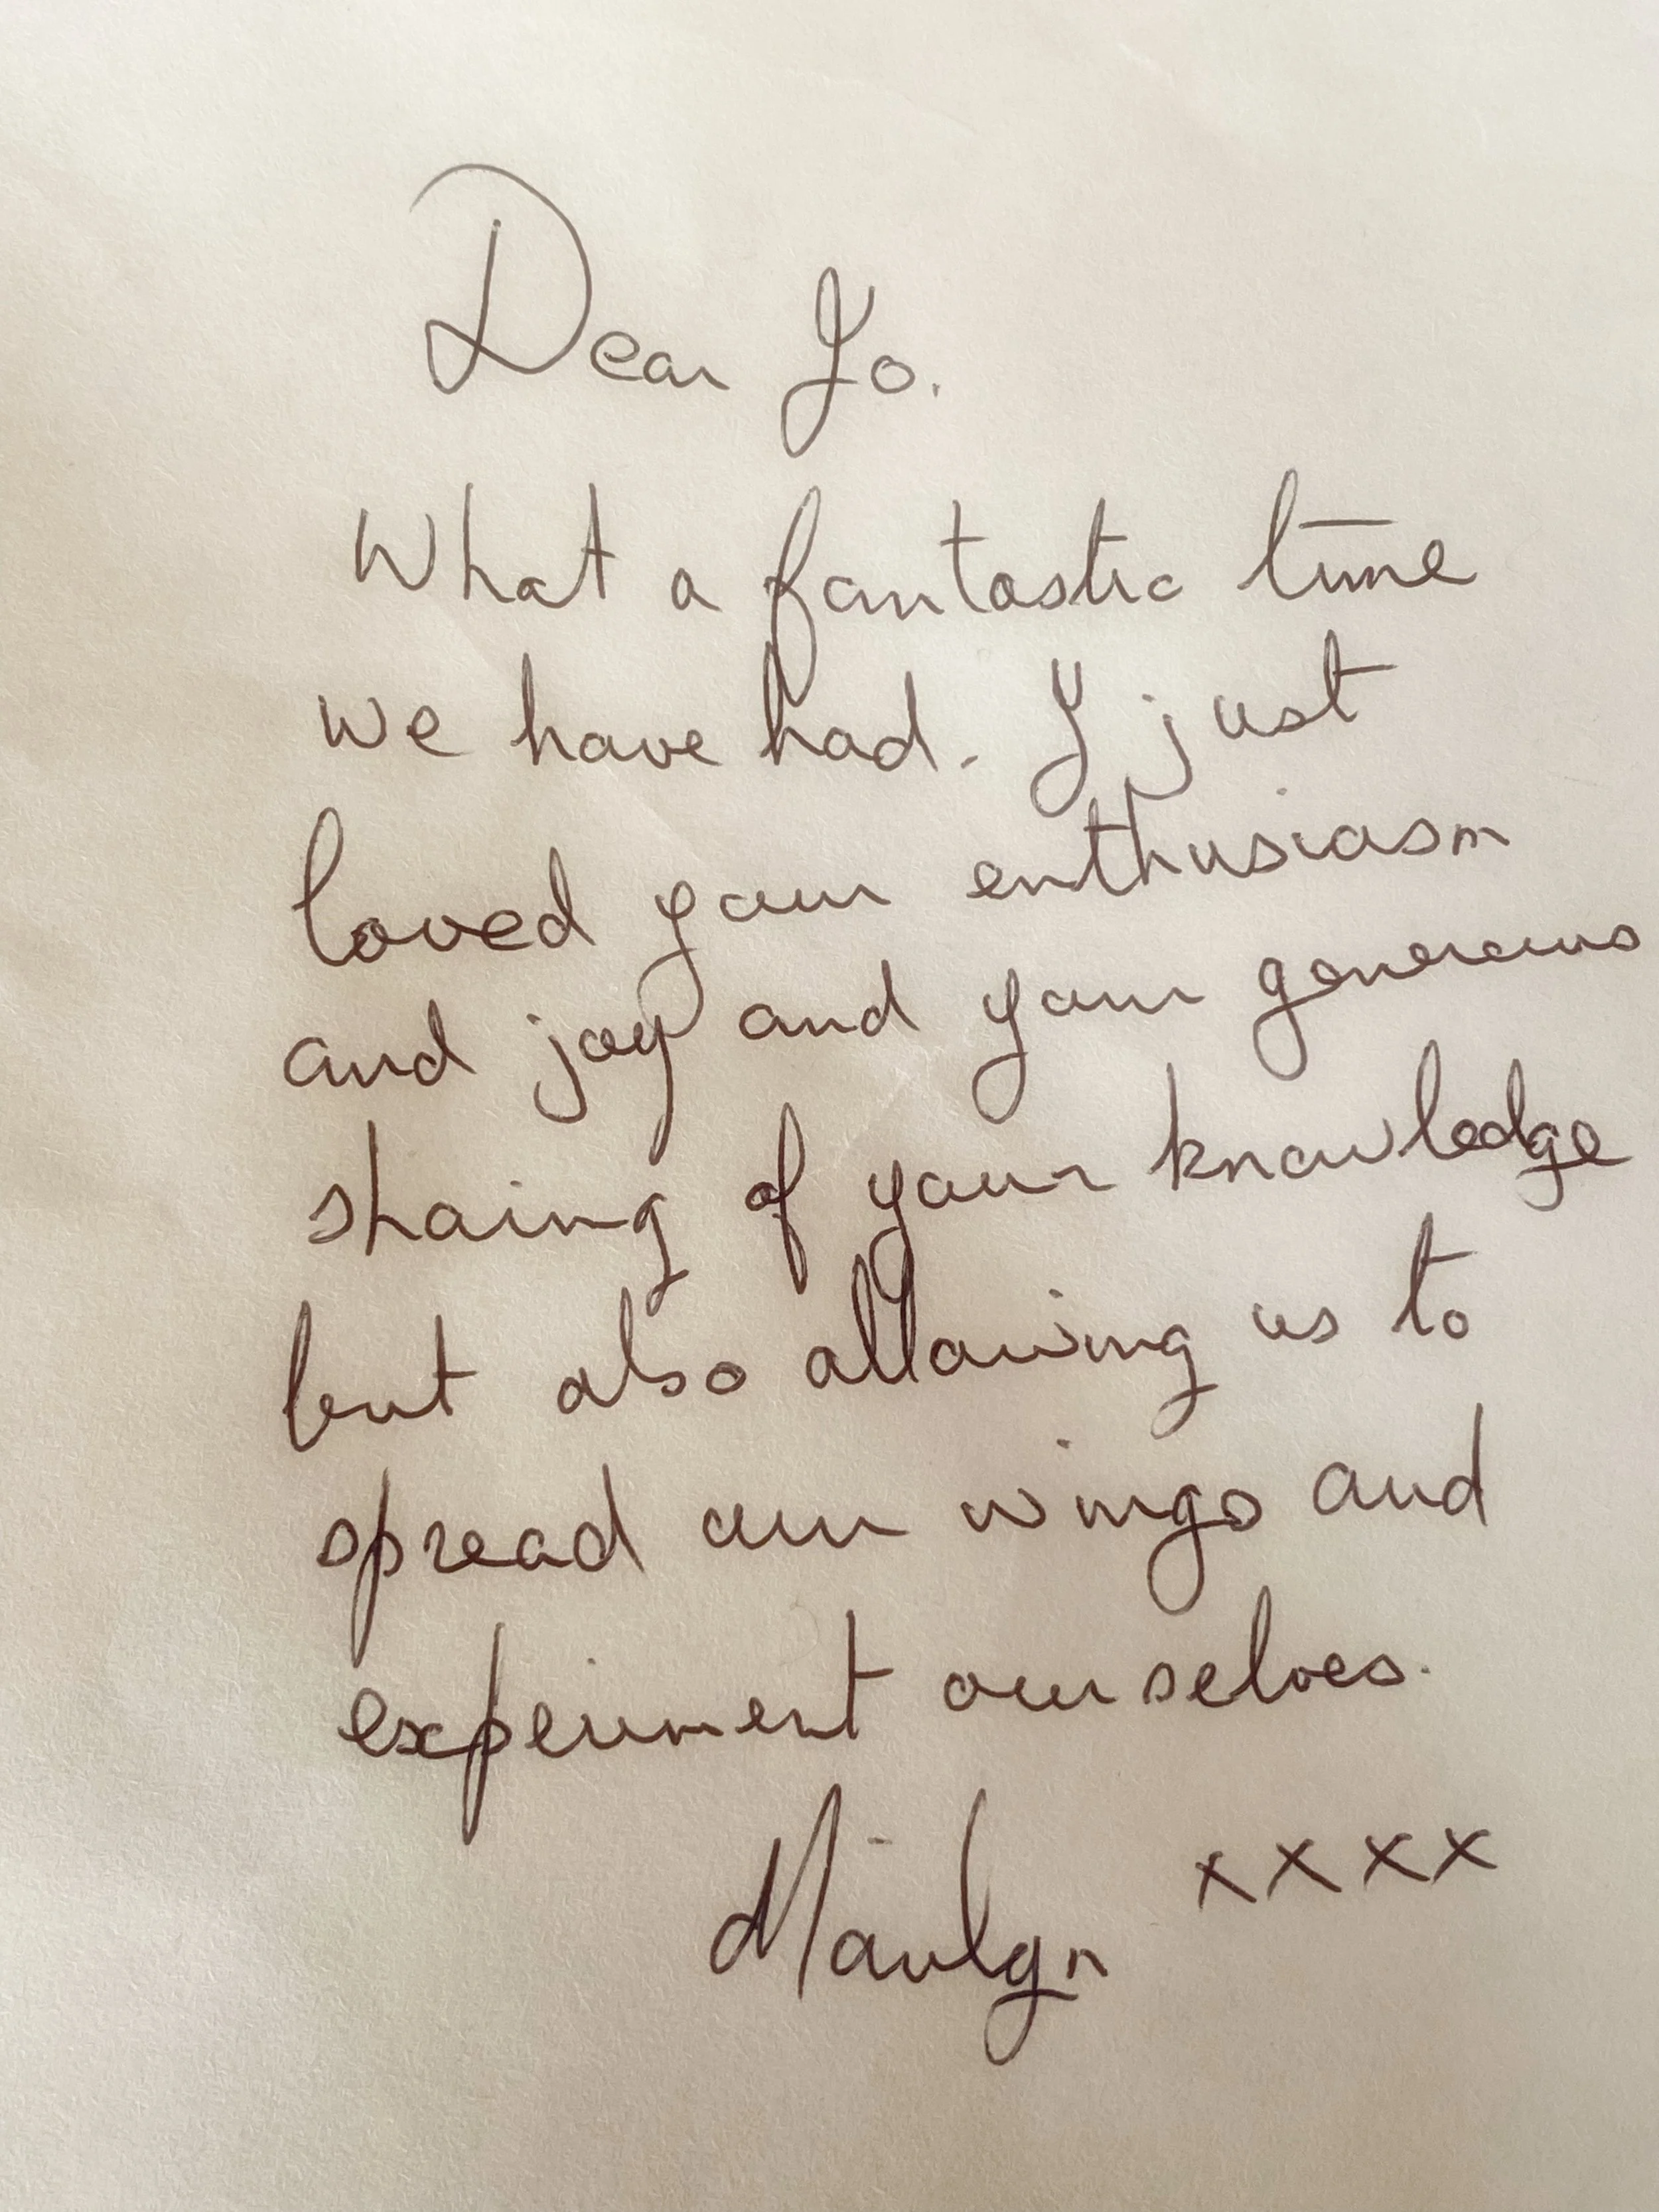 Dear Jo.
What a fantastic time
we have had. I just
loved your enthusiasm
and joy and your generous
sharing of your knowledge
but also allowing us to
spread our wings and
experiment ourselves.
Marilyn xxxx